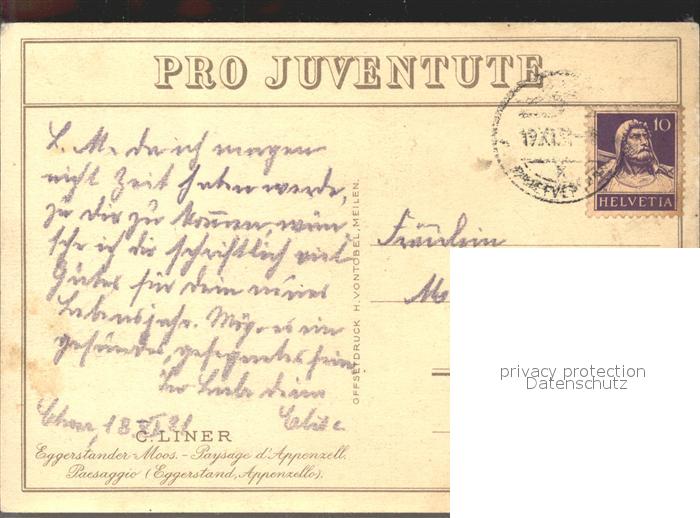 PRO JUVENTUTE
19.XI.
10
HELVETIA
L. M. da ich morgen
nicht Zeit haben werde,
zu dir zu kommen, wün
sche ich dir schriftlich viel
Gutes für dein neues
Lebensjahr. Möge es ein
gesundes, gesegnetes sein
In Liebe deine
Chur, 18.XI.31
Fräulein
OFFSETDRUCK H. VONTOBEL, MEILEN.
C. LINER
Eggerstander-Moos. - Paysage d'Appenzell.
Paesaggio (Eggerstand, Appenzello).
privacy protection
Datenschutz